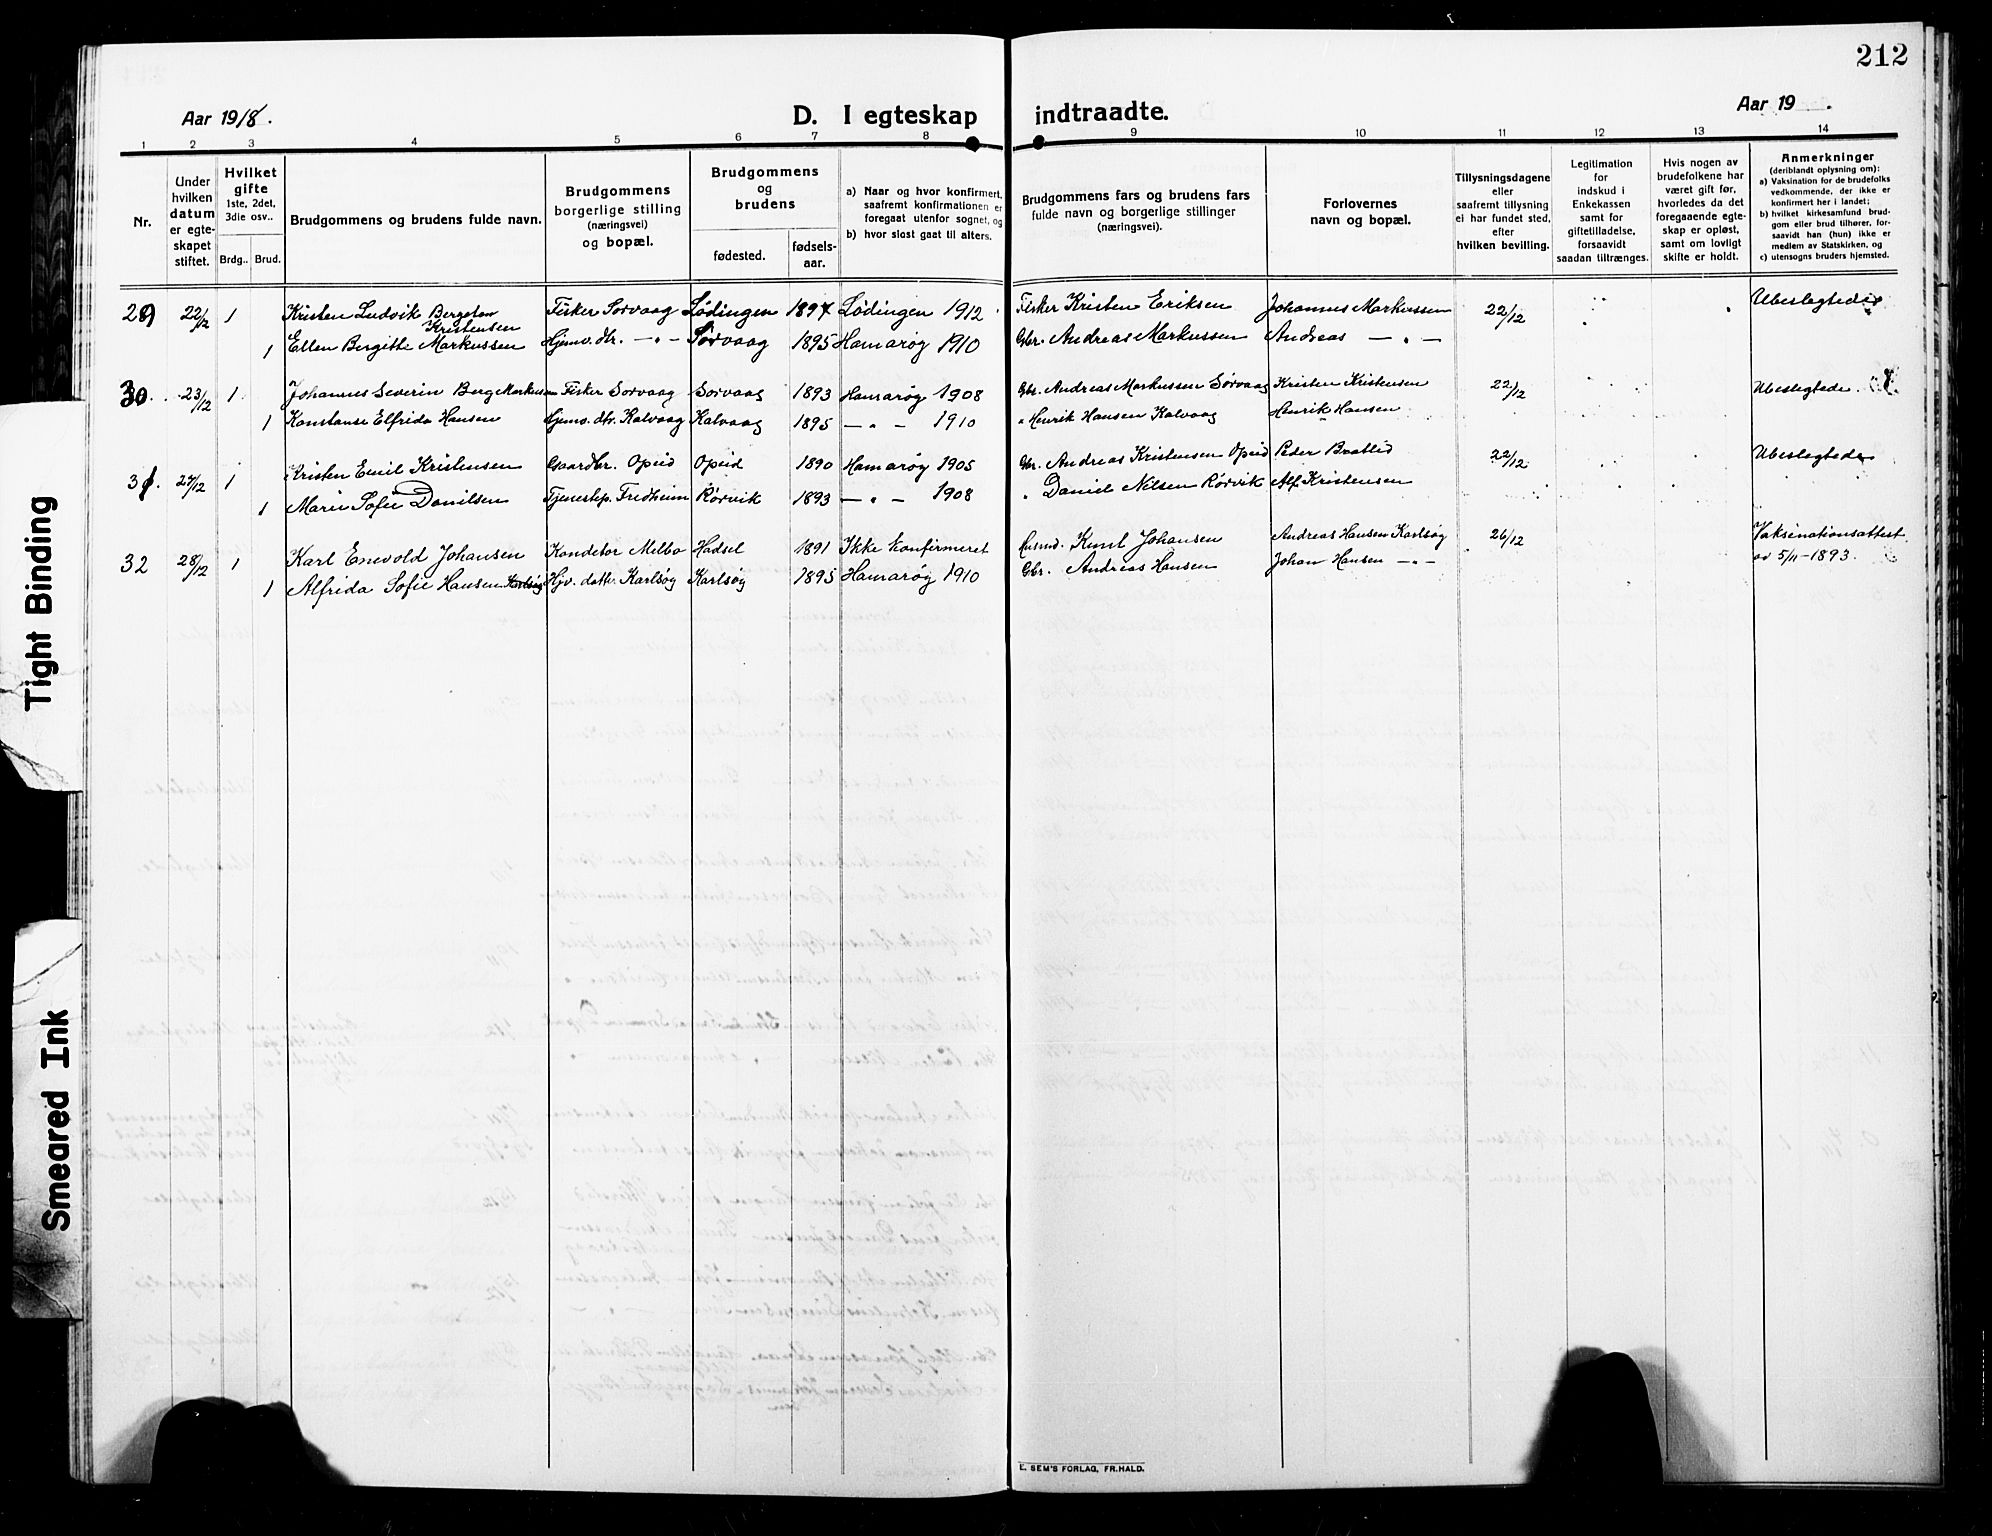 212
Aar 1918.
D. I egteskap indtraadte.
Aar 19 .
1 2 3 4 5 6 7 8 9 10 11 12 13 14
Nr.
Under hvilken datum er egteskapet stiftet.
Hvilket gifte 1ste, 2det, 3die osv..
Brdg.. Brud.
Brudgommens og brudens fulde navn.
Brudgommens borgerlige stilling (næringsvei) og bopæl.
Brudgommens og brudens
fødested. fødselsaar.
a) Naar og hvor konfirmert, saafremt konfirmationen er foregaat utenfor sognet, og
b) hvor sidst gaat til alters.
Brudgommens fars og brudens fars fulde navn og borgerlige stillinger (næringsvei).
Forlovernes navn og bopæl.
Tillysningsdagene eller saafremt tillysning ei har fundet sted, efter hvilken bevilling.
Legitimation for indskud i Enkekassen samt for giftetilladelse, forsaavidt saadan tiltrænges.
Hvis nogen av brudefolkene har været gift før, hvorledes da det foregaaende egteskap er opløst, samt om lovligt skifte er holdt.
Anmerkninger
(deriblandt oplysning om):
a) Vaksination for de brudefolks vedkommende, der ikke er konfirmert her i landet;
b) hvilket kirkesamfund brudgom eller brud tilhører, forsaavidt han (hun) ikke er medlem av Statskirken, og
c) utensogns bruders hjemsted.
29 22/12 1 Kristen Ludvik Bergeton Kristensen Fisker Sorvaag Lødingen 1897 Lødingen 1912 Fisker Kristen Eriksen Johannes Markussen 22/12 Ubeslegtede
1 Ellen Bergitte Markussen Hjemv. dtr. — „ — Sørvaag 1895 Hamarøg 1910 Gbr. Andreas Markussen Andreas — „ —
30. 23/12 1 Johannes Severin Berg Markussen Fisker Sorvaag Sorvaag 1893 Hamarøg 1908 Gbr. Andreas Markussen Sørvaag Kristen Kristensen 22/12 Ubeslegtede.
1 Konstanse Elfrida Hansen Hjemv. dtr. Kalvaag Kalvaag 1895 — „ — 1910 „ Henrik Hansen Kalvaag Henrik Hansen
31. 27/12 1 Kristen Emil Kristensen Gaardbr. Opeid Opeid 1890 Hamarøg 1905 Gbr. Andreas Kristensen Opeid Peder Braatlid 22/12 Ubeslegtede
1 Marie Sofie Danilsen Tjenestep. Fredheim Rørvik 1893 — „ — 1908 „ Daniel Nilsen Rørvik Alf Kristensen
32 28/12 1 Karl Enevold Johansen Konditor Melbo Hadsel 1891 Ikke konfirmeret Knut Johansen Andreas Hansen Karlsøg 26/12 Vaksinationsattest
1 Alfrida Sofie Hansen Karlsøg Hjv. dattr. Karlsøg Karlsøg 1895 Hamarøg 1910 Gbr. Andreas Hansen Johan Hansen — „ — av 5/11 - 1893.
Tight Binding
Smeared Ink
E. SEM'S FORLAG, FR.HALD.